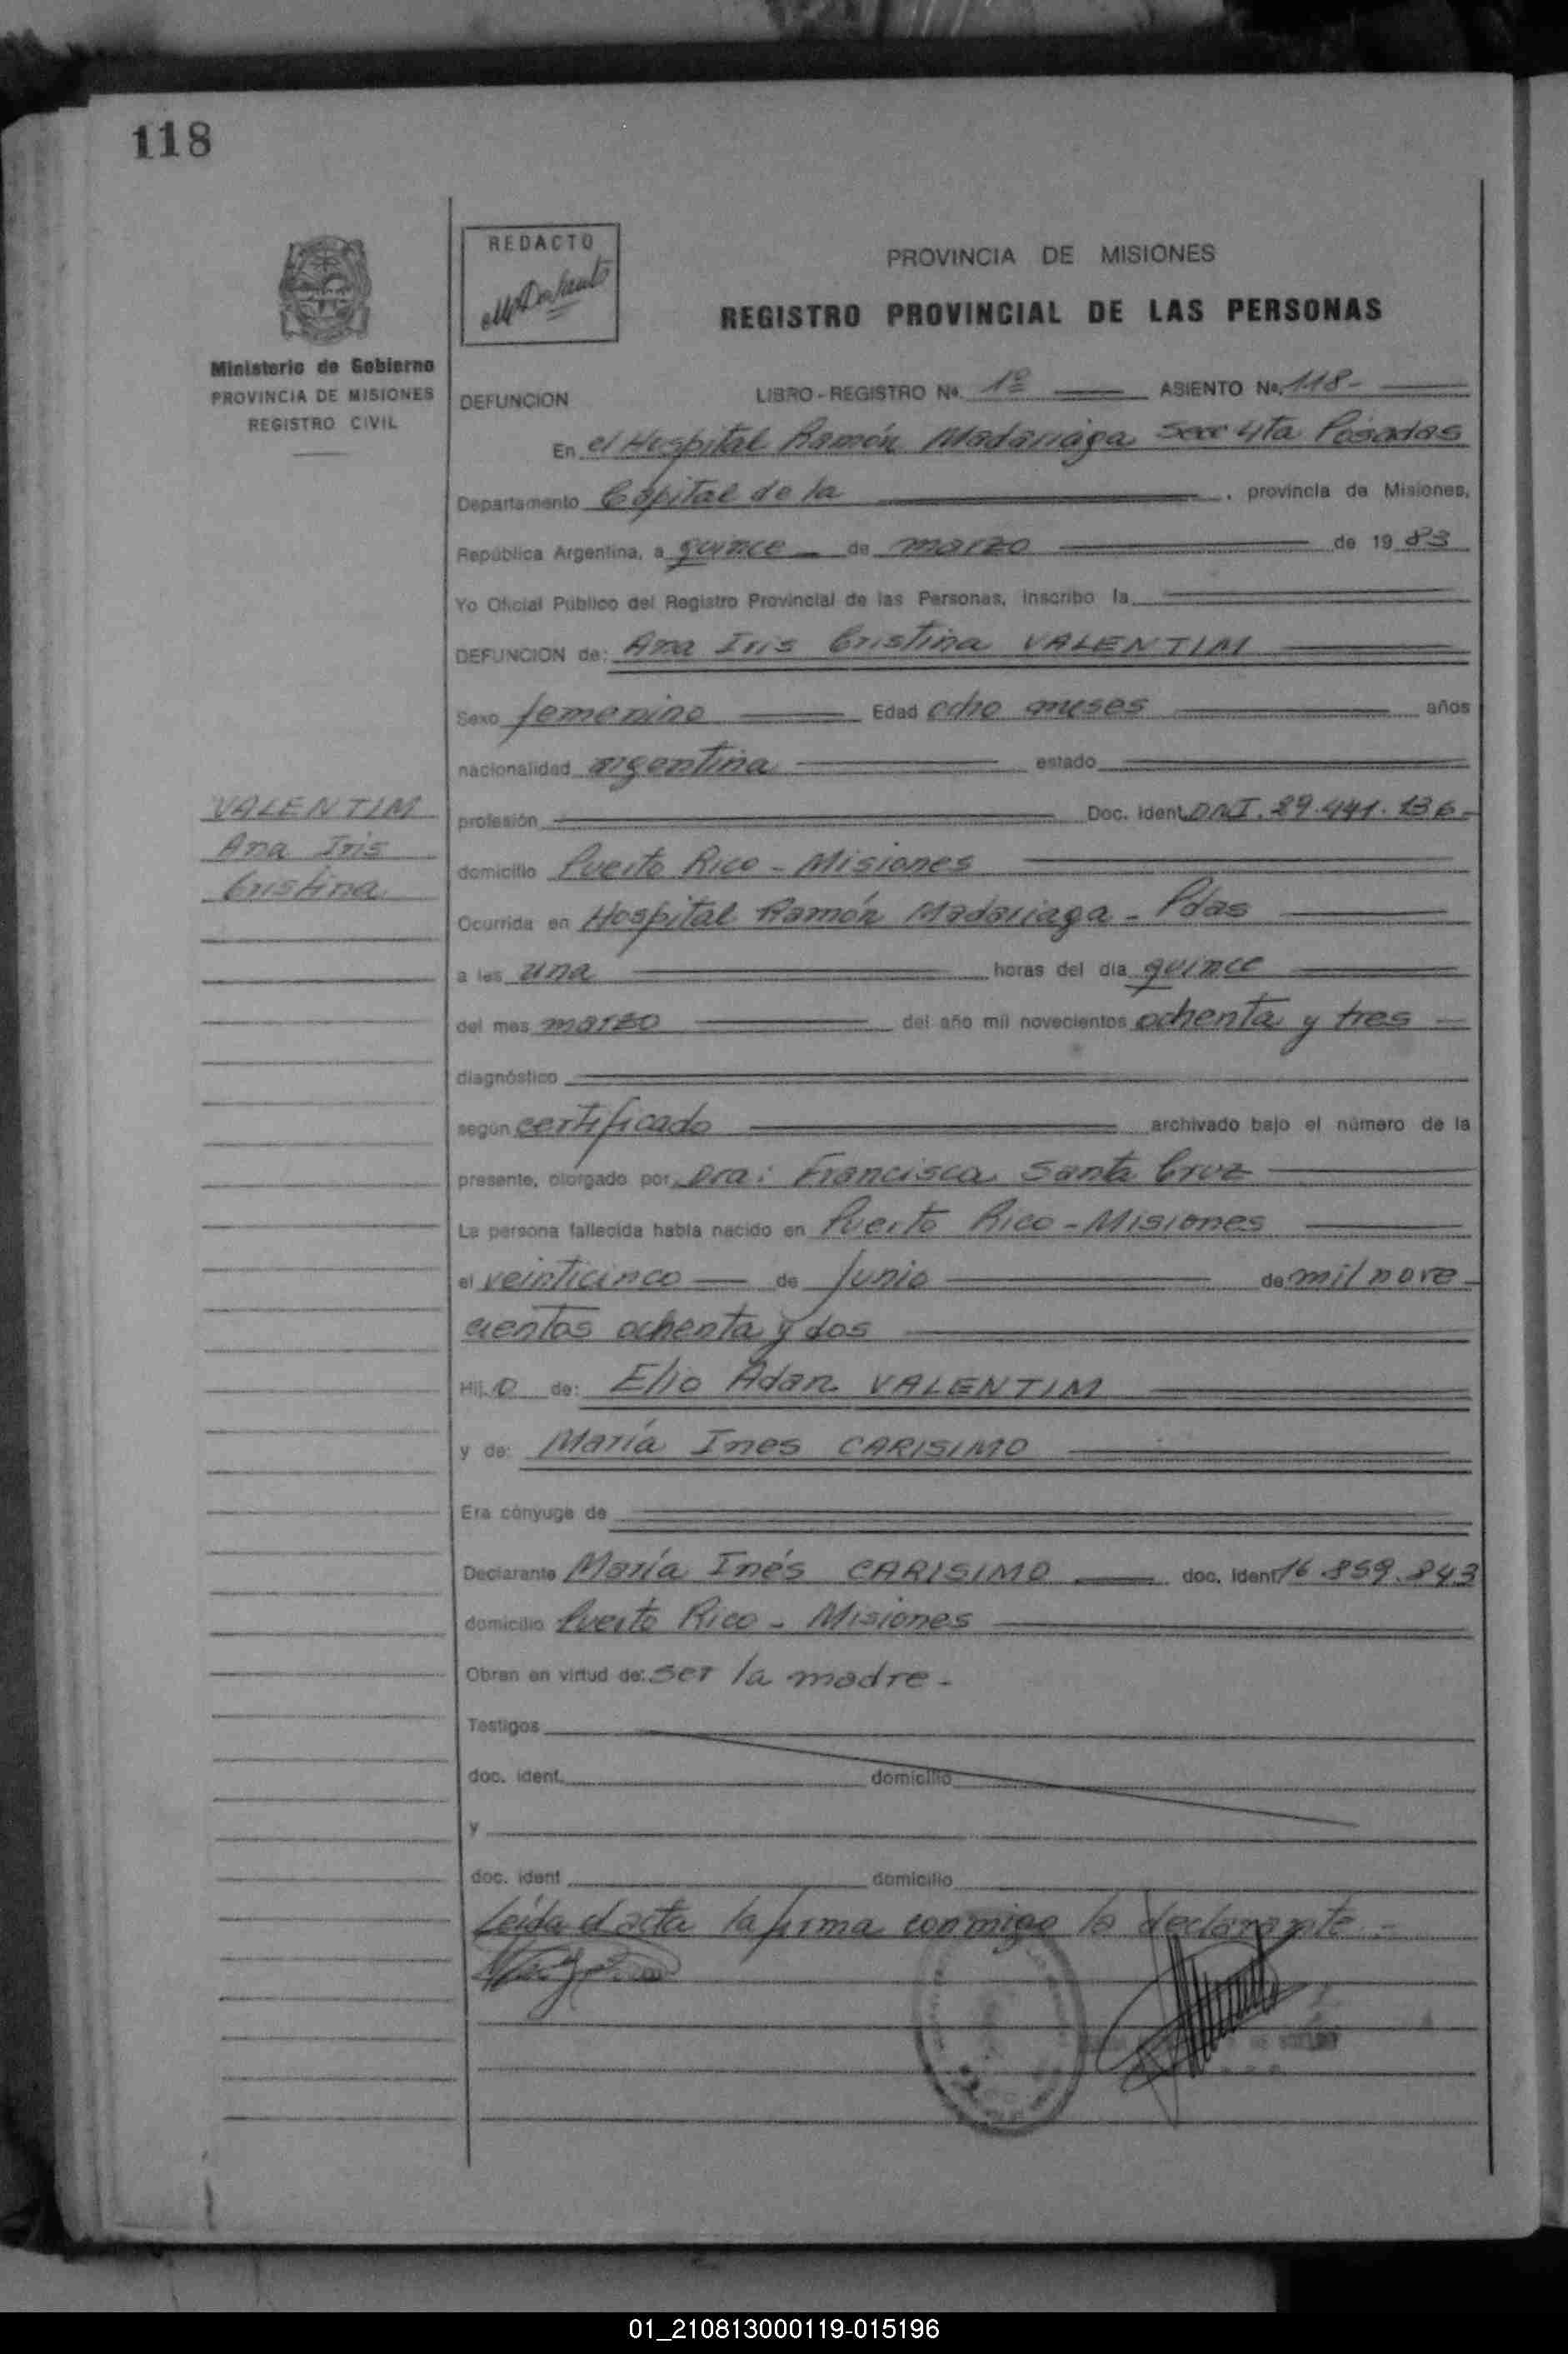 118
REDACTO
PROVINCIA DE MISIONES
REGISTRO PROVINCIAL DE LAS PERSONAS
Ministerio de Gobierno
PROVINCIA DE MISIONES
REGISTRO CIVIL
DEFUNCION
LIBRO-REGISTRO No. 1º ASIENTO No. 118-
En el Hospital Ramón Madariaga Secc 4ta Posadas
Departamento Capital de la , provincia de Misiones,
República Argentina, a quince de marzo de 1983
Yo Oficial Público del Registro Provincial de las Personas, inscribo la
DEFUNCION de: Ana Iris Cristina VALENTIM
Sexo femenino Edad ocho meses años
nacionalidad argentina estado
VALENTIM
Ana Iris
Cristina
profesión Doc. Ident. DNI. 29.441.136-
domicilio Puerto Rico - Misiones
Ocurrida en Hospital Ramón Madariaga - Pdas
a las una horas del día quince
del mes marzo del año mil novecientos ochenta y tres
diagnóstico
según certificado archivado bajo el número de la
presente, otorgado por, Dra: Francisca Santa Cruz
La persona fallecida había nacido en Puerto Rico - Misiones
el veinticinco de Junio de mil nove
cientos ochenta y dos
Hij.a de: Elio Adan VALENTIM
y de: María Ines CARISIMO
Era cónyuge de
Declarante María Inés CARISIMO doc. Ident 16.859.843
domicilio Puerto Rico - Misiones
Obran en virtud de: ser la madre -
Testigos
doc. ident. domicilio
y
doc. ident domicilio
Leída el acta la firma conmigo la declarante -
01_210813000119-015196